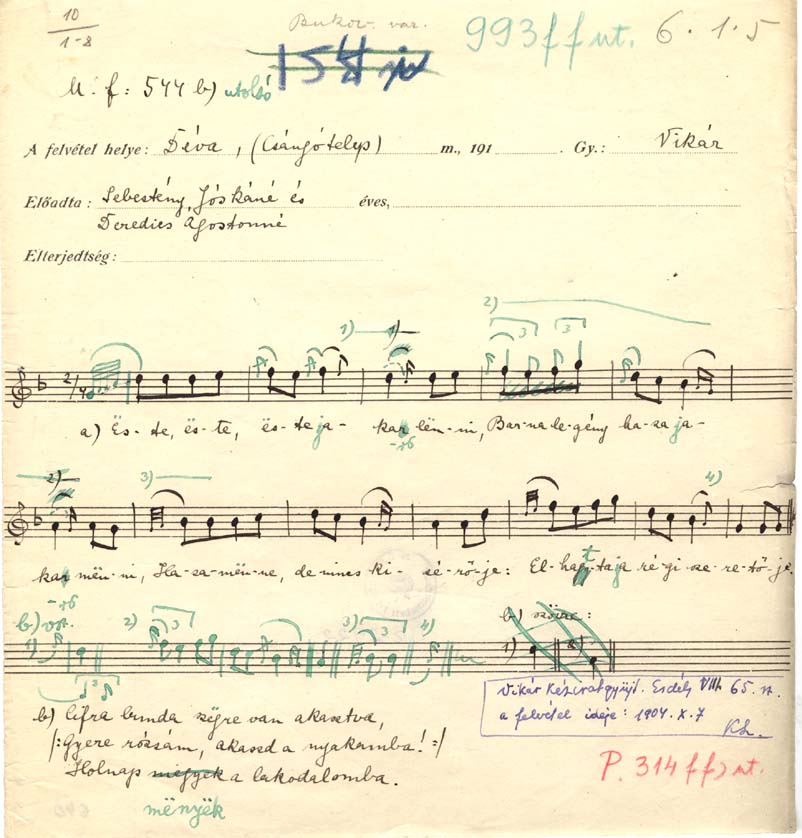 10
1-8
Bukov. var.
993 f f ut.
6.1.5
M. f: 544 b) utolsó
A felvétel helye: Déva, (Csángótelep) m., 191 . Gy.: Vikár
Előadta: Sebestény Jóskáné és éves,
Deredics Ágostonné
Elterjedtség:
1) 1) 2) 3 3
2/4
a) Ës-te, ës-te, ës-te ja- kar lën-ni, Bar-na le-gény ha-za ja-
2) 3) 4)
kar mën-ni, Ha-za mën-ne, de nincs ki- sé-rő-je: El-hagy-ta ja ré-gi sze-re-tő-je.
b) vsz. 2) 3 3) 3 4)
1)
3
b) szövre:
1) 2)
b) Cifra bunda szëgre van akasztva,
/:Gyere rózsám, akaszd a nyakamba!:/
Holnap megyek a lakodalomba.
mënyëk
Vikár Kéziratgyűjt. Erdély VIII. 65. sz.
a felvétel ideje: 1904. X. 7
P. 314 f f) ut.